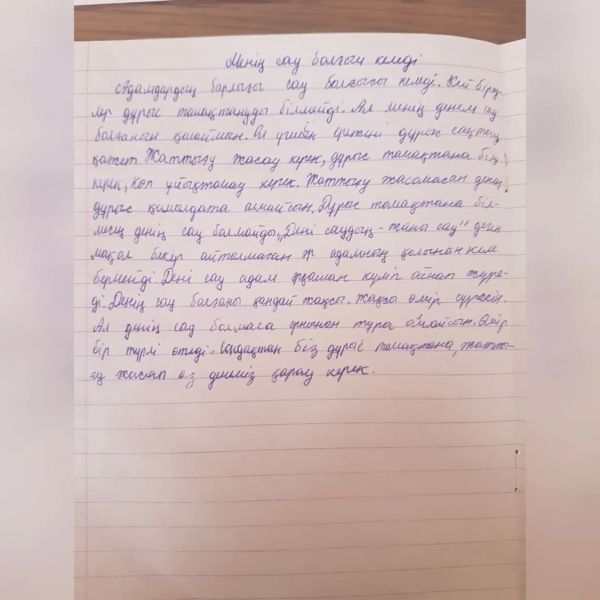 Менің сау болғым келеді
Адамдардың барлығы сау болғысы келеді. Кей біреу-
лер дұрыс тамақтануды білмейді. Ал менің денем сау
болғанын қалаймын. Ол үшін ережені дұрыс сақтау
қажет. Жаттығу жасау керек, дұрыс тамақтана білу
керек, көп ұйықтамау керек. Жаттығу жасамасаң денең
дұрыс қимылдата алмайсың. Дұрыс тамақтана біл-
месең денің сау болмайды. „Дені саудың - жаны сау" деген
мақал бекер айтылмаған әр адамның қолынан кем
бермейді. Дені сау адам әрқашан күліп ойнап жүре-
ді. Денің сау болғаны қандай жақсы. Жақсы өмір сүресің.
Ал денің сау болмаса орнынан тұра алмайсың. Өмір
бір түрлі өтеді. Сондықтан біз дұрыс тамақтана, жатты-
ғу жасап өз денеміз қарау керек.